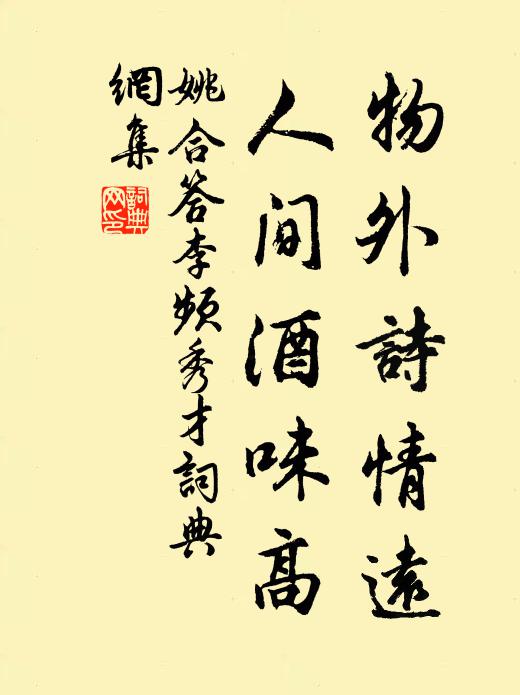 物外詩情遠
人间酒味高
姚合答李频秀才詞典
網集
詞典
网印